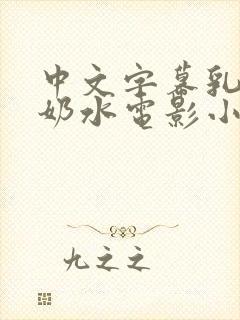 中文字幕乳
奶水电影小
九之之